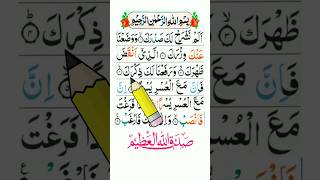 بِسْمِ اللهِ الرَّحْمٰنِ الرَّحِيْمِ
اَلَمْ نَشْرَحْ لَكَ صَدْرَكَ ۙ وَوَضَعْنَا
عَنْكَ وِزْرَكَ ۙ الَّذِيْٓ اَنْقَضَ
ظَهْرَكَ ۙ وَرَفَعْنَا لَكَ ذِكْرَكَ ؕ
فَاِنَّ مَعَ الْعُسْرِ يُسْرًا ۙ اِنَّ
مَعَ الْعُسْرِ يُسْرًا ؕ فَاِذَا فَرَغْتَ
فَانْصَبْ ۙ وَاِلٰى رَبِّكَ فَارْغَبْ
صَدَقَ اللهُ الْعَظِيْم
ظَهْرَكَ
ذِكْرَكَ
فَاِنَّ
اِنَّ
مَعَ
فَرَغْتَ